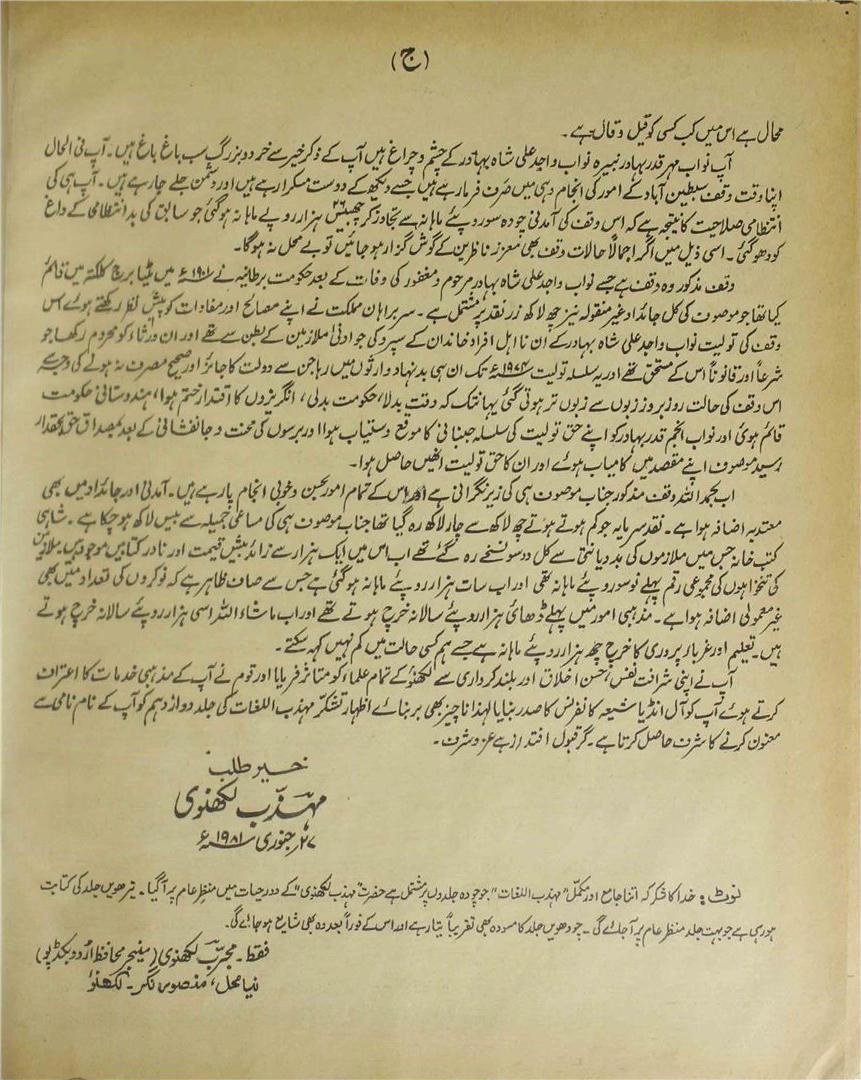 (ج)
محال ہے اس میں کب کسی کو قیل و قال ہے۔
آپ نواب مہر قدر بہادر نبیرہ نواب واجد علی شاہ بہادر کے چشم و چراغ ہیں آپ کے ذکر خیر سے خرد و بزرگ سب باغ باغ ہیں۔ آپ فی الحال
اپنا وقت وقف سبطین آباد کے امور کی انجام دہی میں صرف فرما رہے ہیں جسے دیکھ کے دوست مسکرا رہے ہیں اور دشمن جلے جا رہے ہیں۔ آپ ہی کی
انتظامی صلاحیت کا نتیجہ ہے کہ اس وقف کی آمدنی چودہ سو روپئے ماہانہ سے تجاوز کر چھبیس ۲۶ ہزار روپے ماہانہ ہو گئی جو سابق کی بد انتظامی کے داغ
کو دھو گئی۔ اسی ذیل میں اگر اجمالاً حالات وقف بھی معزز ناظرین کے گوش گزار ہو جائیں تو بے محل نہ ہوگا۔
وقف مذکور وہ وقف ہے جسے نواب واجد علی شاہ بہادر مرحوم و مغفور کی وفات کے بعد حکومت برطانیہ نے ۱۹۰۱ء میں مٹیا برج کلکتہ میں قائم
کیا تھا جو موصوف کی کل جائداد غیر منقولہ نیز چھ لاکھ زر نقد پر مشتمل ہے۔ سربراہان مملکت نے اپنے مصالح اور مفادات کو پیش نظر رکھتے ہوئے اس
وقف کی تولیت نواب واجد علی شاہ بہادر کے ان نا اہل افراد خاندان کے سپرد کی جو ادنیٰ ملازمین کے بطن سے تھے اور ان ورثاء کو محروم رکھا جو
شرعاً اور قانوناً اس کے مستحق تھے اور یہ سلسلہ تولیت ء تک ان ہی بد نہاد وارثوں میں رہا جن سے دولت کا جائز اور صحیح مصرف نہ ہونے کی وجہ سے
اس وقف کی حالت روز بروز زبوں سے زبوں تر ہوتی گئی یہانتک کہ وقت بدلا، حکومت بدلی، انگریزوں کا اقتدار ختم ہوا، ہندوستانی حکومت
قائم ہوئی اور نواب انجم قدر بہادر کو اپنے حق تولیت کی سلسلہ جنبانی کا موقع دستیاب ہوا اور برسوں کی محنت و جانفشانی کے بعد بمصداق حق بحقدار
رسید موصوف اپنے مقصد میں کامیاب ہوئے اور ان کا حق تولیت انھیں حاصل ہوا۔
اب بحمد اللہ وقف مذکور جناب موصوف ہی کی زیر نگرانی ہے اور اس کے تمام امور بحسن و خوبی انجام پا رہے ہیں۔ آمدنی اور جائداد میں بھی
معتدبہ اضافہ ہوا ہے۔ نقد سرمایہ جو کم ہوتے ہوتے چھ لاکھ سے چار لاکھ رہ گیا تھا جناب موصوف ہی کی مساعی جمیلہ سے بیس لاکھ ہو چکا ہے۔ شاہی
کتب خانہ جس میں ملازموں کی بد دیانتی سے کل دو سو نسخے رہ گئے تھے اب اس میں ایک ہزار سے زائد بیش قیمت اور نادر کتابیں موجود ہیں۔ ملازمین
کی تنخواہوں کی مجموعی رقم پہلے نو سو روپئے ماہانہ تھی اور اب سات ہزار روپئے ماہانہ ہو گئی ہے جس سے صاف ظاہر ہے کہ نوکروں کی تعداد میں بھی
غیر معمولی اضافہ ہوا ہے۔ مذہبی امور میں پہلے ڈھائی ہزار روپئے سالانہ خرچ ہوتے تھے اور اب ماشاء اللہ اسی ہزار روپئے سالانہ خرچ ہوتے
ہیں۔ تعلیم اور غربا پروری کا خرچ چھ ہزار روپئے ماہانہ ہے جسے ہم کسی حالت میں کم نہیں کہہ سکتے۔
آپ نے اپنی شرافت نفس، حسن اخلاق اور بلند کرداری سے لکھنؤ کے تمام علماء کو متاثر فرمایا اور قوم نے آپ کے مذہبی خدمات کا اعتراف
کرتے ہوئے آپ کو آل انڈیا شیعہ کانفرنس کا صدر بنایا لہٰذا ناچیز بھی بربنائے اظہار تشکر مہذب اللغات کی جلد دوازدہم کو آپ کے نام نامی سے
معنون کرنے کا شرف حاصل کرتا ہے۔ گر قبول افتد ز ہے عز و شرف۔
خیر طلب
مہذب لکھنوی
۲۷؍ جنوری ۱۹۸۱ء
نوٹ: خدا کا شکر کہ اتنا جامع اور مکمل "مہذب اللغات" جو چودہ جلدوں پر مشتمل ہے حضرت "مہذب لکھنوی" کے دور حیات میں منظر عام پر آ گیا۔ تیرھویں جلد کی کتابت
ہو رہی ہے جو بہت جلد منظر عام پر آ جائے گی۔ چودھویں جلد کا مسودہ بھی تقریباً تیار ہے اور اس کے فوراً بعد وہ بھی شایع ہو جائے گی۔
فقط۔ مجرب لکھنوی (منیجر محافظ اردو بکڈپو)
نیا محل، منصور نگر۔ لکھنؤ